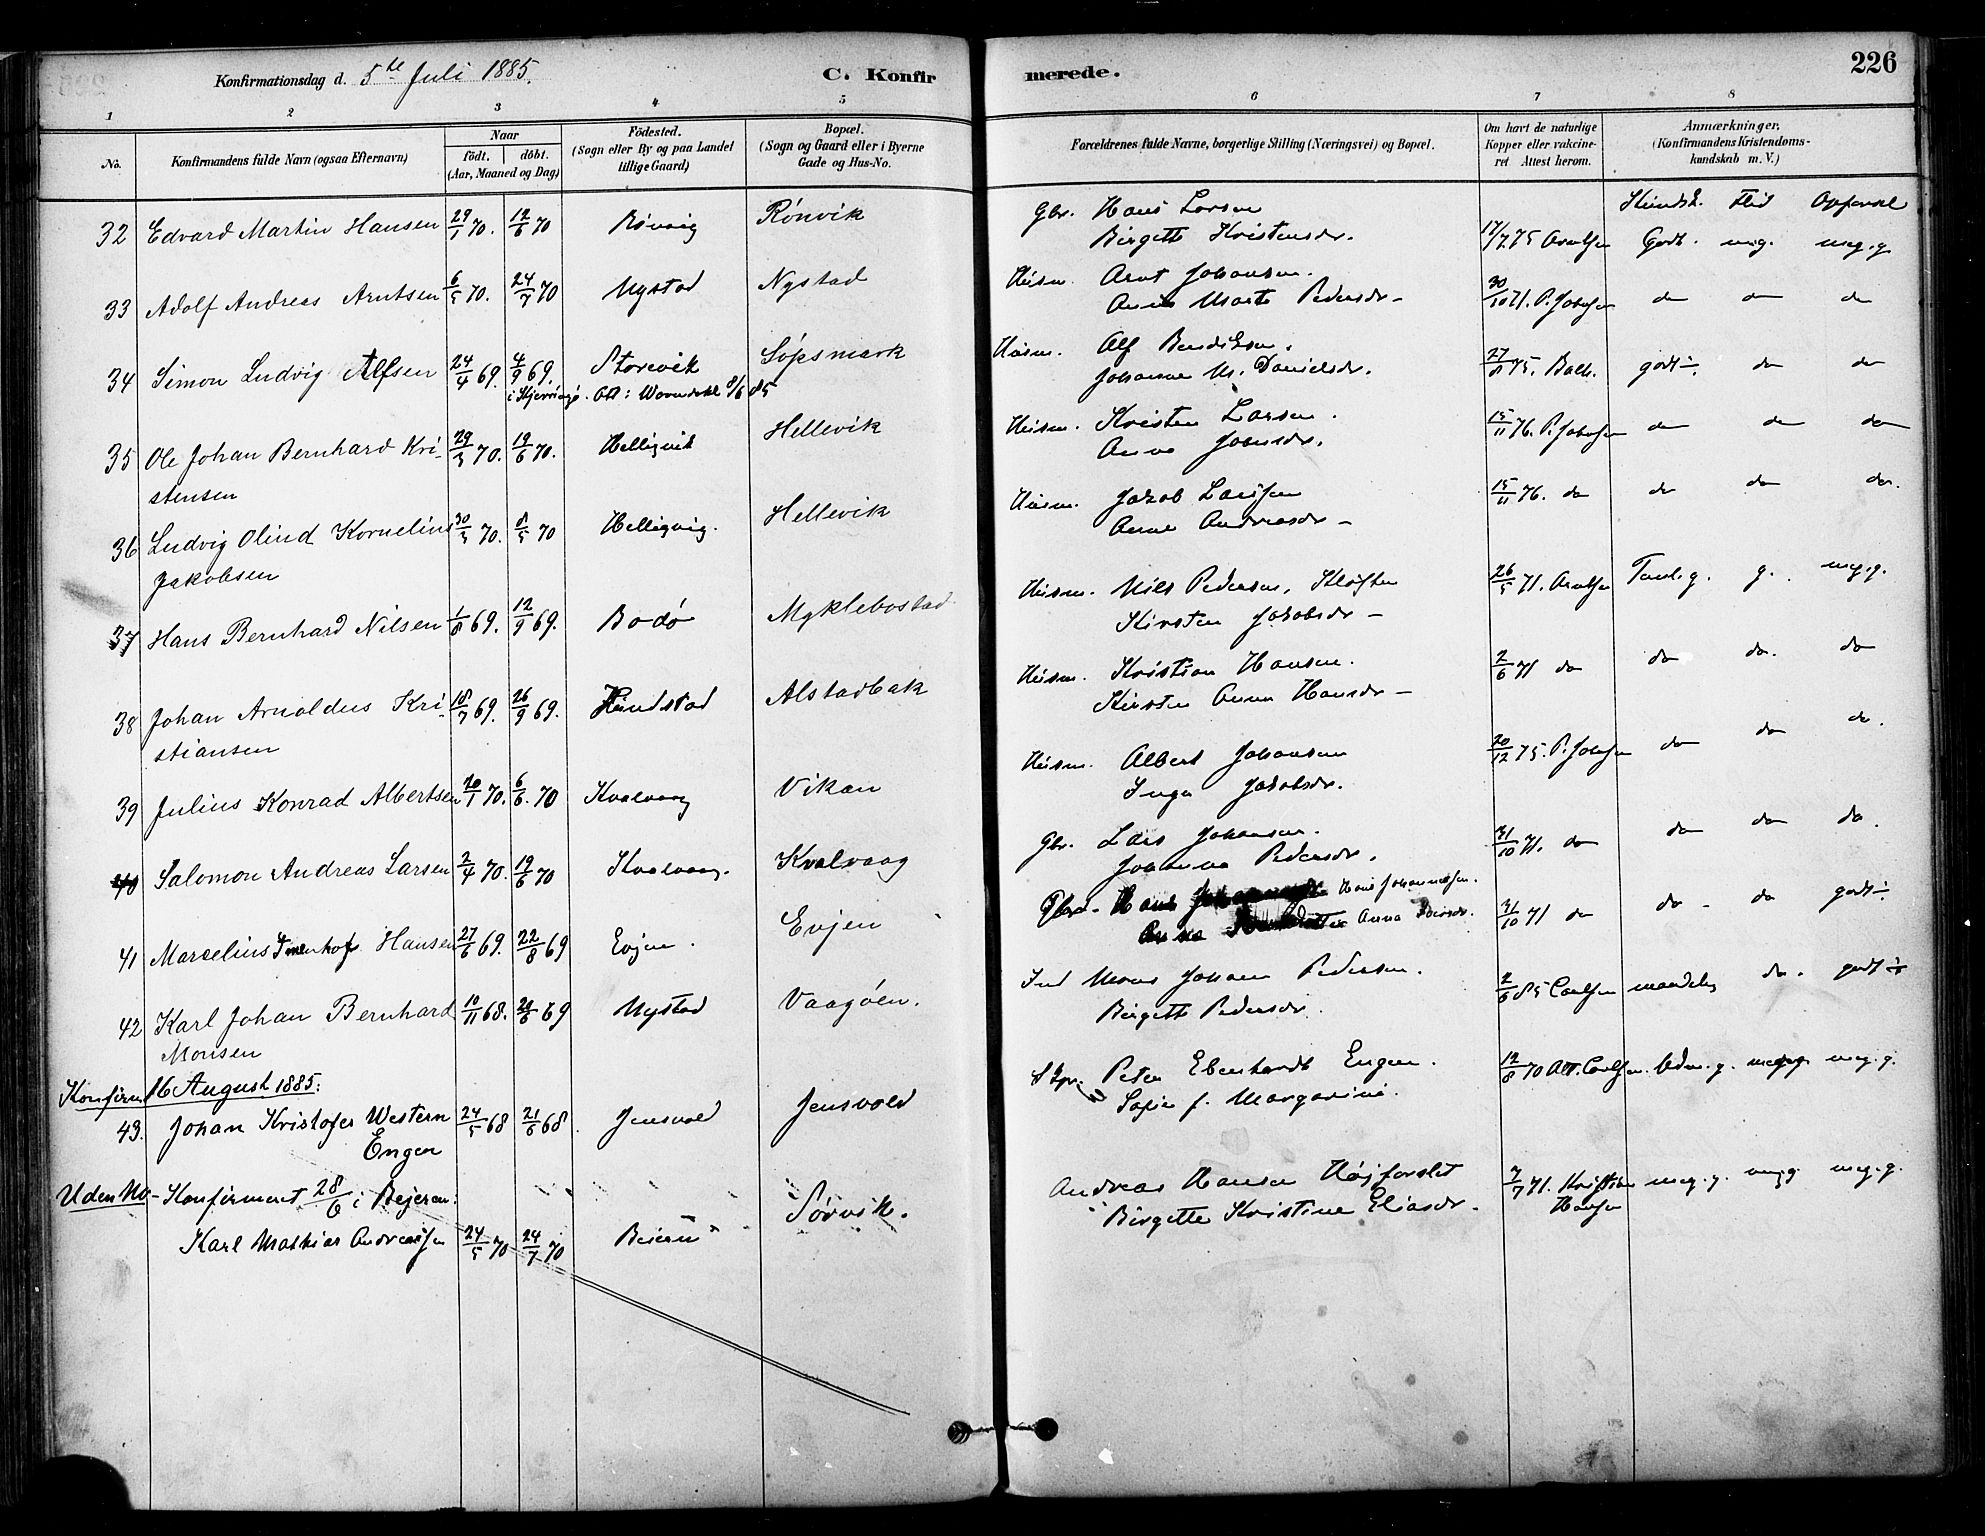 226
Konfirmationsdag d. 5te Juli 1885.
C. Konfirmerede.
1 2 3 4 5 6 7 8
No.
Konfirmandens fulde Navn (ogsaa Efternavn)
Naar
födt. döbt.
(Aar, Maaned og Dag)
Födested.
(Sogn eller By og paa Landet
tillige Gaard)
Bopæl.
(Sogn og Gaard eller i Byerne
Gade og Hus-No.
Forældrenes fulde Navne, borgerlige Stilling (Næringsvei) og Bopæl.
Om havt de naturlige
Kopper eller vakcineret
Attest herom.
Anmærkninger.
(Konfirmandens Kristendomskundskab
m. V.)
Kundsk. Flid Opførsel
32 Edvard Martin Hansen 29/1 70. 12/6 70 Rönvig Rönvik Gbr. Hans Larsen 17/7 75 Arntsen Godt. meg. meg. g
Birgitte Kristensdr.
33 Adolf Andreas Arntsen 6/5 70. 24/7 70 Nystad Nystad Húsm. Arnt Johansen. 30/10 71. P. Johnsen do do do
Anne Marte Pedersdr
34 Simon Ludvig Alfsen 24/4 69. 4/9 69. Storevik Löpsmark Húsm. Alf Bendiksen. 27/8 75. Balk. godt ÷. do do
i Kjerringö. Att: Warendahl 8/6 85 Johanne M. Danielsdr.
35 Ole Johan Bernhard Kri- 29/3 70. 19/6 70. Helligvik Hellevik Húsm. Kristen Larsen. 15/11 76. P. Johnsen do do do
stensen Anna Johnsdr.
36 Ludvig Olind Kornelius 30/3 70. 8/5 70 Helligvig. Hellevik Húsm. Jakob Larsen 15/11 76. do do do do.
Jakobsen Anne Andreasdr
37 Hans Bernhard Nilsen 1/8 69. 12/9 69. Bodö Myklebostad Húsm. Nils Pedersen, Kløften 26/5 71. Arntsen Taal. g. g. meg. g.
Kirsten Jakobsdr
38 Johan Arnoldus Kri- 18/7 69. 26/9 69. Hundstad Alstadbak Húsm. Kristian Hansen. 2/6 71 do do do. do
stiansen Kirsten Anna Hansdr
39 Julius Konrad Albertsen 20/1 70. 6/6. 70 Kvalvaag Vikan Húsm. Albert Johansen 20/12 75. P. Johnsen do do do.
Inga Jakobsdr.
40 Salomon Andreas Larsen 2/4 70. 19/6 70 Kvalvaag. Kvalvaag Gbr. Lars Johansen. 31/10 71. do do do do.
Johanna Pedersdr.
41 Marcelius Imenhof Hansen 27/6 69. 22/8 69 Evjen. Evjen Gbr. Hans Hans Johannessen. 31/10 71 do do do godt ÷
Anna
42 Karl Johan Bernhard 10/11 68. 21/6 69 Nystad Vaagöen. Ind Mons Johan Pedersen. 2/6 85 Carlsen maadelig do. godt ÷
Monsen Birgitte Pedersdr.
Konfirm. 16 August 1885:
43. Johan Kristofer Western 24/5 68 21/6 68. Jensvold Jensvold Skpr. Peter Eberhardt Engen. 12/8 70 Att. Carlsen. Udm. g. meg. g meg. g.
Engen Sofie f. Margarine.
Uden No- Konfirmeret 28/6 i Bejeren:
Karl Mathias Andreassen 24/5 70 24/7 70 Beieren Sørvik. Andreas Hansen Højforslet 7/7 71. Kristian meg. g. meg g meg. g.
Birgitte Kristine Eliasdr. Hansen